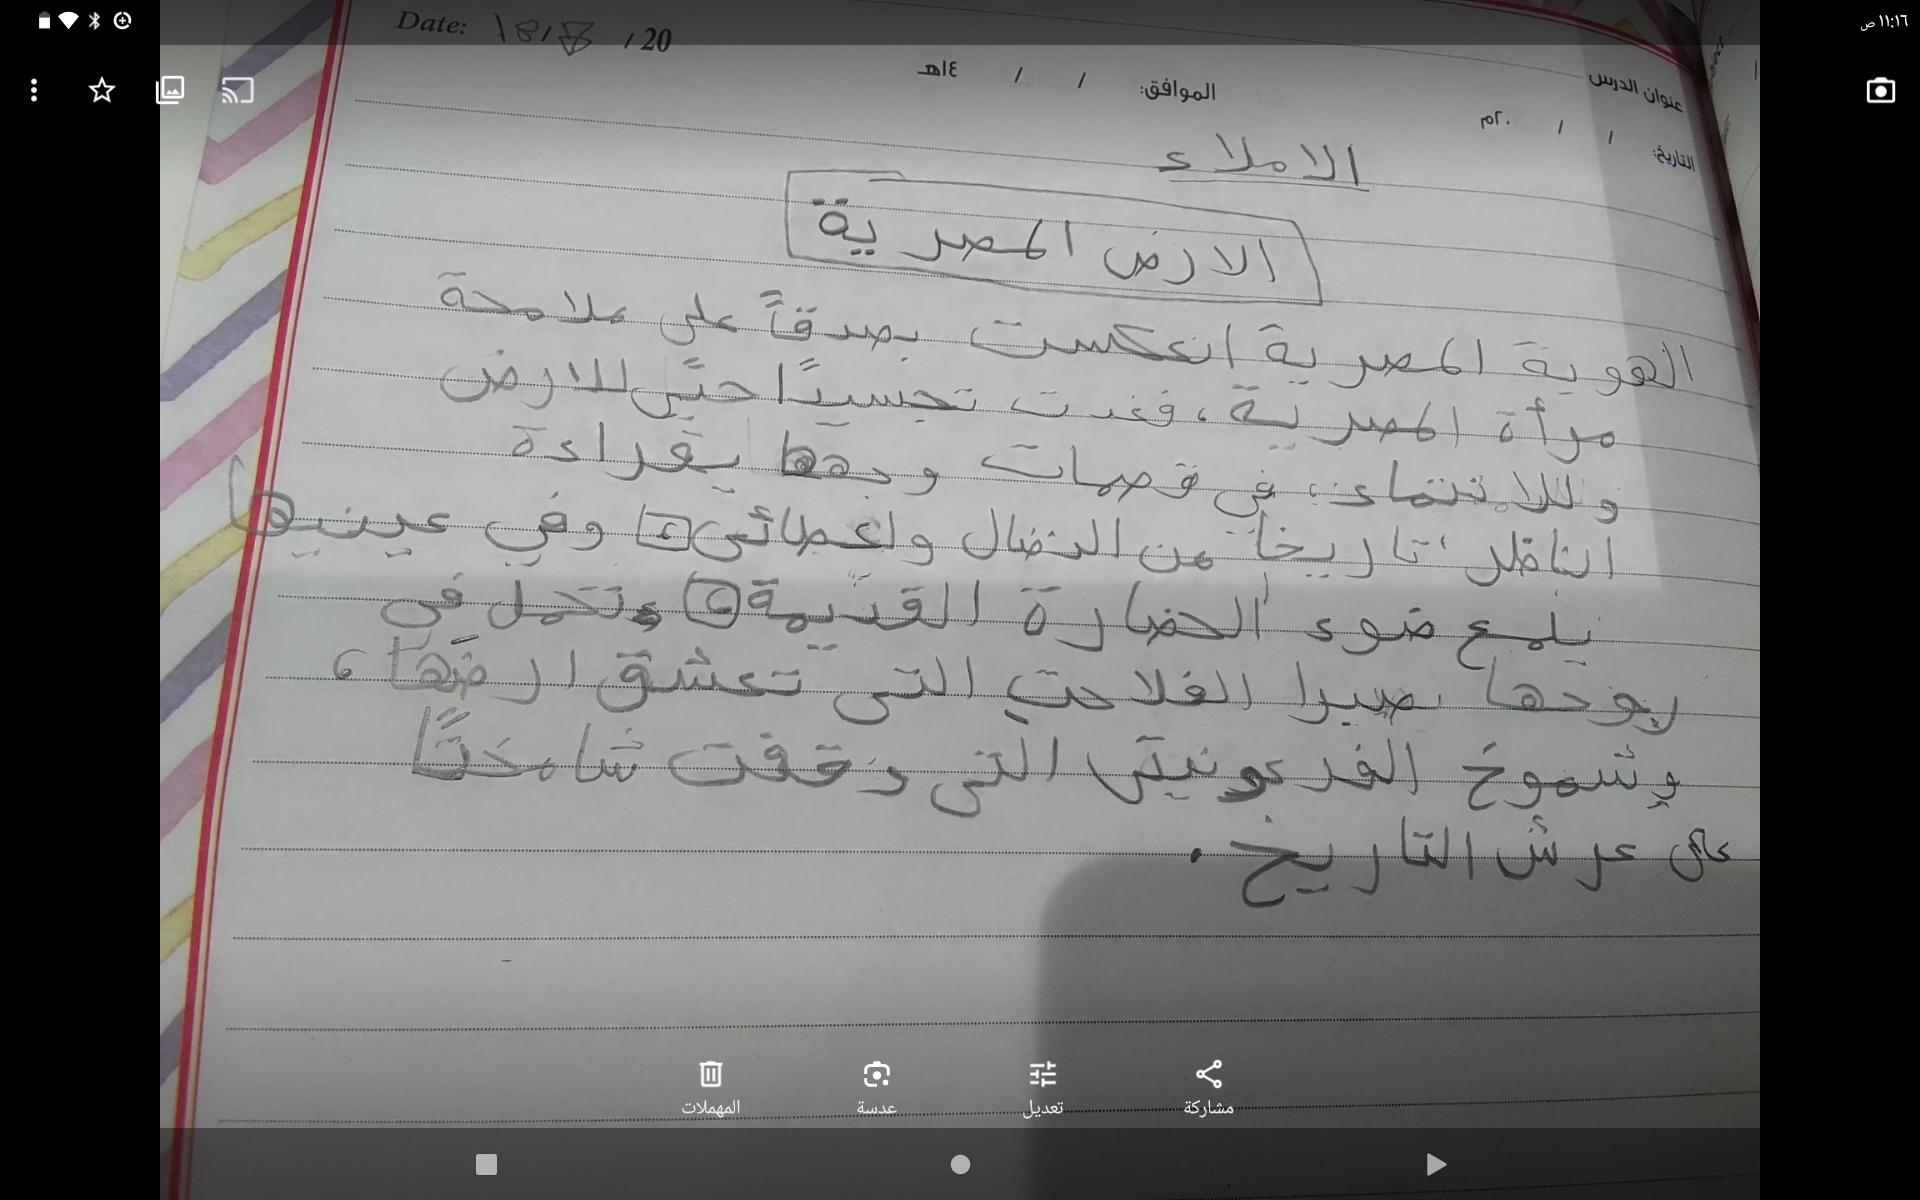 ١١:١٦ ص
Date: 18/8 /20
عنوان الدرس
الموافق: / / ١٤هـ
التاريخ: / / ٢٠م
الاملاء
الارض المصرية
الهوية المصرية انعكست بصدقاً على ملامحة
مرأة المصرية، فغدت تجسيدًا حتًى للارض
وللانتماء، في قصمات وجهها يقراءة
الناظر تاريخاً من النضال واعطائى، وفي عينيها
يلمع ضوء الحضارة القديمة، وتحمل في
روحها صبرا الفلاحت التى تعشق ارضها،
وشموخ الفرعونيتى التى وقفت شامختًا
على عرش التاريخ.
مشاركة
تعديل
عدسة
المهملات